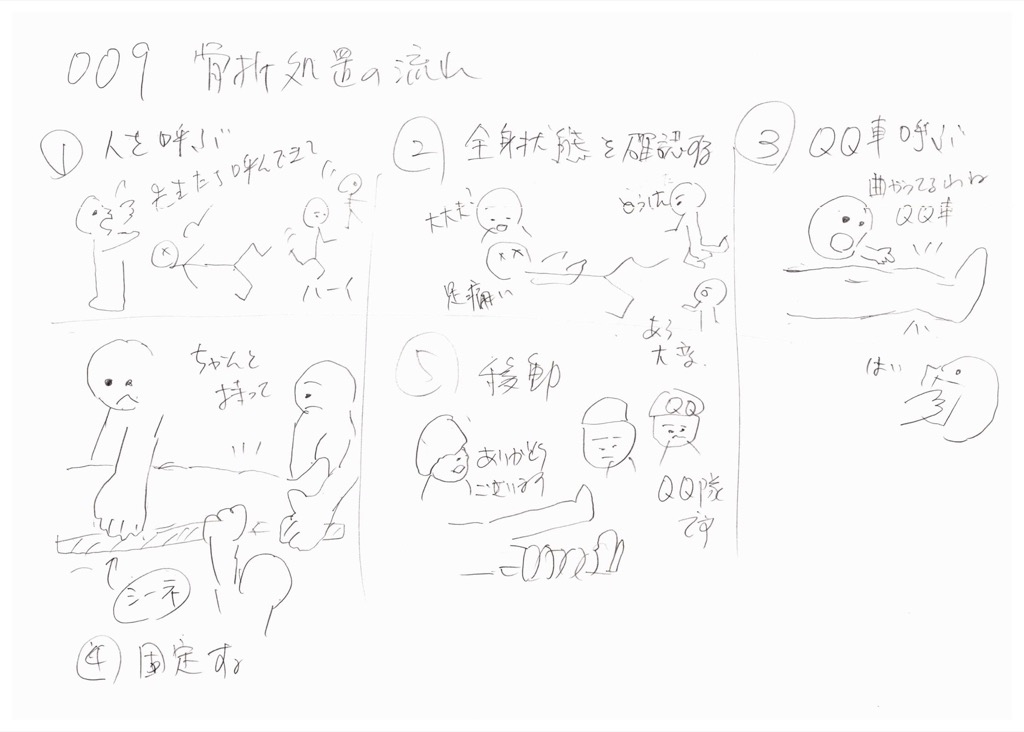 009 骨折処置の流れ
① 人を呼ぶ
先生たち呼んできて
ハーイ
② 全身状態を確認する
大丈夫?
足痛い
あら
大変.
③ QQ車呼ぶ
曲がってるわね
QQ車
はい
ちゃんと
持って
シーネ
④ 固定する
5 移動
ありがとう
ございます
QQ
QQ隊
です